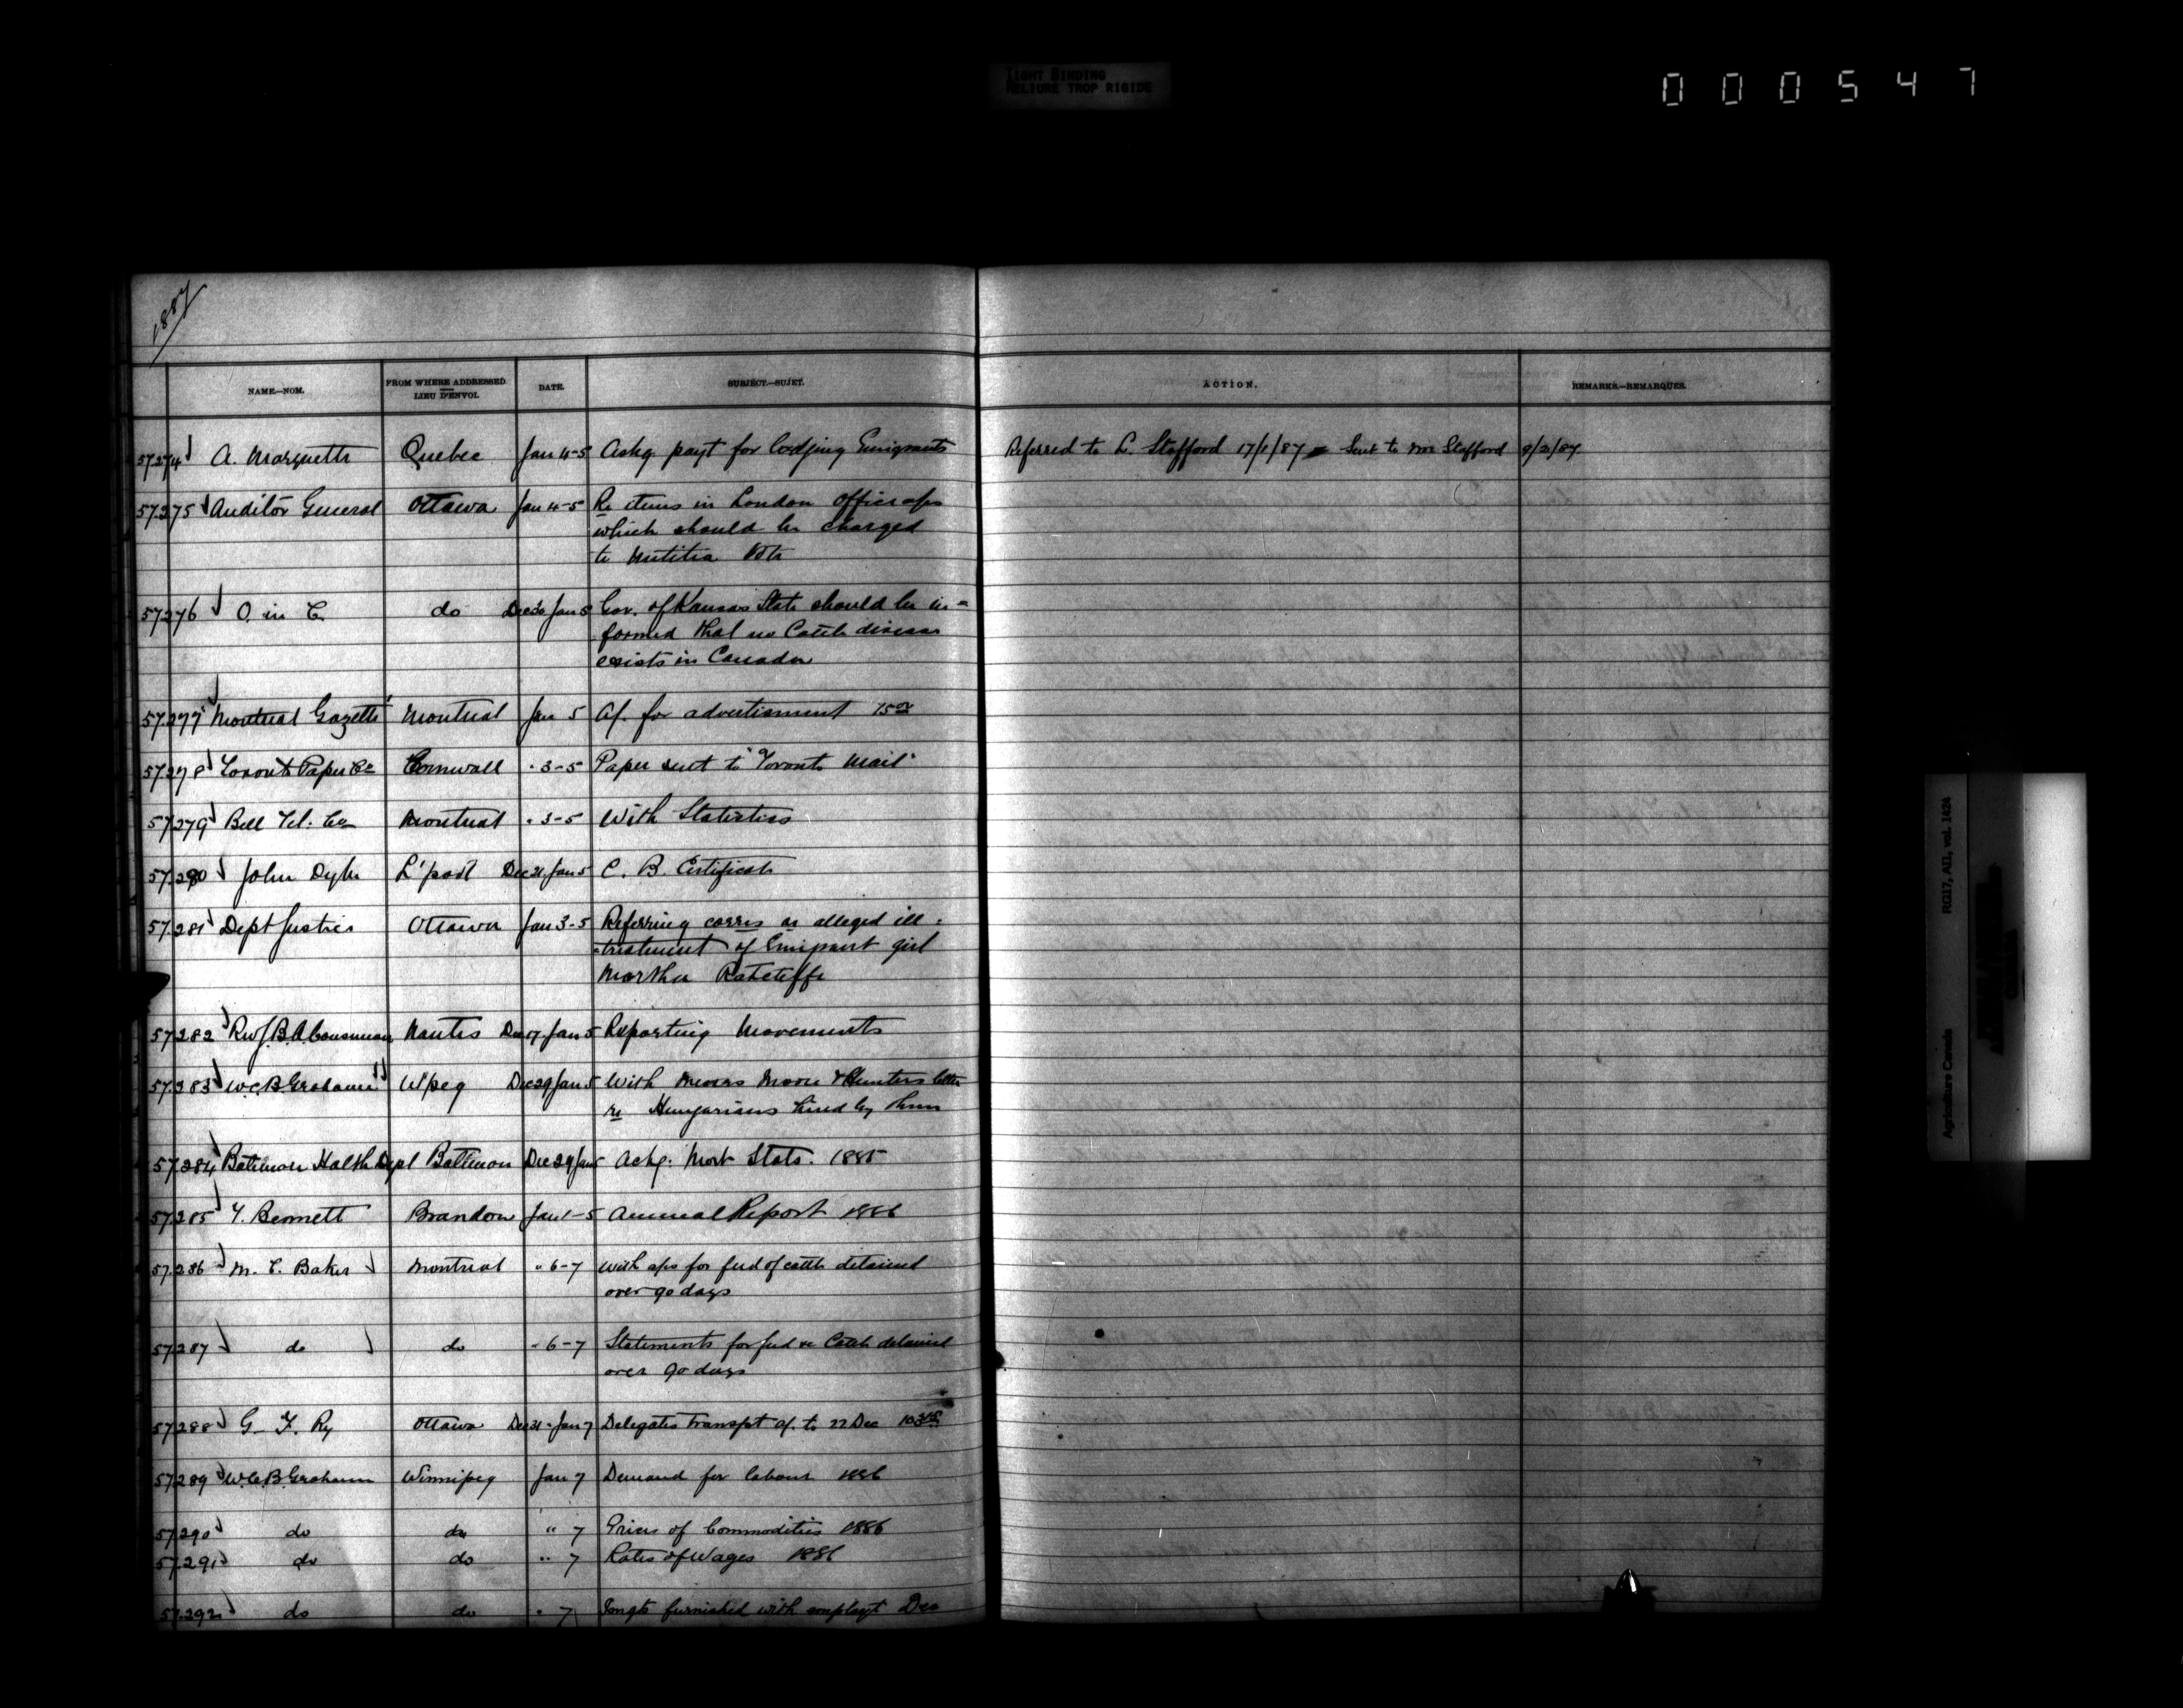 TIGHT BINDING
RELIURE TROP RIGIDE
000547
1887
NAME.—NOM. FROM WHERE ADDRESSED. LIEU D'ENVOI. DATE. SUBJECT.—SUJET. ACTION. REMARKS.—REMARQUES.
57274 A. Marquette Quebec Jan 4-5 Askg payt for lodging Emigrants Referred to L. Stafford 17/1/87 Sent to Mr Stafford 9/2/87
57275 Auditor General Ottawa Jan 4-5 Re items in London Office a/cs
which should be charged
to Militia Vote
57276 O. in C. do Dec 30 Jan 5 Gov. of Kansas State should be in-
formed that no Cattle disease
exists in Canada
57277 Montreal Gazette Montreal Jan 5 A/. for advertisment 15
57278 Toronto Paper Co Cornwall " 3-5 Paper sent to "Toronto Mail"
57279 Bell Tel. Co Montreal " 3-5 With Statistics
57280 John Dyke L'pool Dec 21 Jan 5 C. B. Certificate
57281 Dept Justice Ottawa Jan 3-5 Referring corres re alleged ill-
-treatment of Emigrant girl
Martha Ratcliffe
57282 Rev J. B. A. Cousineau Nantes Dec 17 Jan 5 Reporting Movements
57283 W. C. B. Grahame W'peg Dec 29 Jan 5 With Messrs Moore & Hunters letter
re Hungarians hired by them
57284 Batimore Health Dept Baltimore Dec 29 Jan 5 Ackg. Mort Stats. 1885
57285 T. Bennett Brandon Jan 1-5 Annual Report 1886
57286 M. C. Baker Montreal " 6-7 With a/cs for feed of cattle detained
over 90 days
57287 do do " 6-7 Statements for feed &c Cattle detained
over 90 days
57288 G. T. Ry Ottawa Dec 31 - Jan 7 Delegates transpt a/. to 22 Dec
57289 W. C. B. Grahame Winnipeg Jan 7 Demand for labour 1886
57290 do do " 7 Prices of Commodities 1886
57291 do do " 7 Rates of Wages 1886
57292 do do " 7 Imgts furnished with employt Dec
Agriculture Canada RG17, AII, vol. 1424